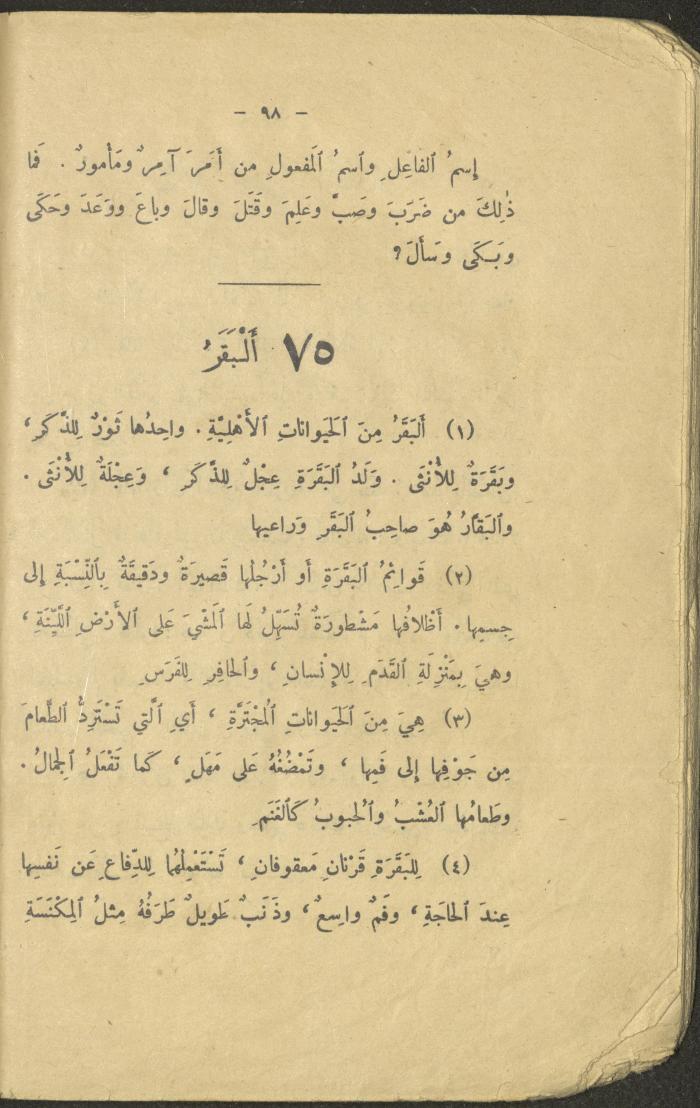 - ٩٨ -
إِسمُ ٱلفاعِلِ وٱسمُ ٱلمَفعولِ من أَمَرَ آمِرٌ ومَأْمورٌ . فَما
ذٰلِكَ من ضَرَبَ وصَبَّ وعَلِمَ وقَتَلَ وقالَ وباعَ ووَعَدَ وحَكَى
وبَكَى وسَأَلَ؟
٧٥ أَلْبَقَرُ
(١) أَلبَقَرُ مِنَ ٱلحَيواناتِ ٱلأَهْلِيَّةِ. واحِدُها ثَوْرٌ لِلذَّكَرِ،
وبَقَرَةٌ لِلأُنْثَى . وَلَدُ ٱلبَقَرَةِ عِجْلٌ لِلذَّكَرِ ، وَعِجْلَةٌ لِلأُنْثَى .
وٱلبَقَّارُ هُوَ صاحِبُ ٱلبَقَرِ وَراعيها
(٢) قَوائِمُ ٱلبَقَرَةِ أَو أَرْجُلُها قَصيرَةٌ ودَقيقَةٌ بِٱلنِّسْبَةِ إِلى
جِسمِها. أَظْلافُها مَشْطورَةٌ تُسَهِّلُ لَها ٱلمَشْيَ عَلى ٱلأَرْضِ ٱللَّيِّنَةِ ،
وهيَ بِمَنْزِلَةِ ٱلقَدَمِ لِلإِنْسانِ ، وٱلحافِرِ لِلفَرَسِ
(٣) هِيَ مِنَ ٱلحَيواناتِ ٱلمُجْتَرَّةِ ، أَيِ ٱلَّتي تَسْتَرِدُّ ٱلطَّعامَ
مِن جَوْفِها إِلى فَمِها ، وتَمْضُغُهُ عَلى مَهَلٍ ، كَما تَفْعَلُ ٱلجِمالُ.
وطَعامُها ٱلعُشْبُ وٱلحُبوبُ كَٱلغَنَمِ
(٤) لِلبَقَرَةِ قَرْنانِ مَعقوفانِ ، تَسْتَعْمِلُهُما لِلدِّفاعِ عَن نَفسِها
عِندَ ٱلحاجَةِ ، وفَمٌ واسِعٌ ، وذَنَبٌ طَويلٌ طَرَفُهُ مِثلُ ٱلمِكْنَسَةِ